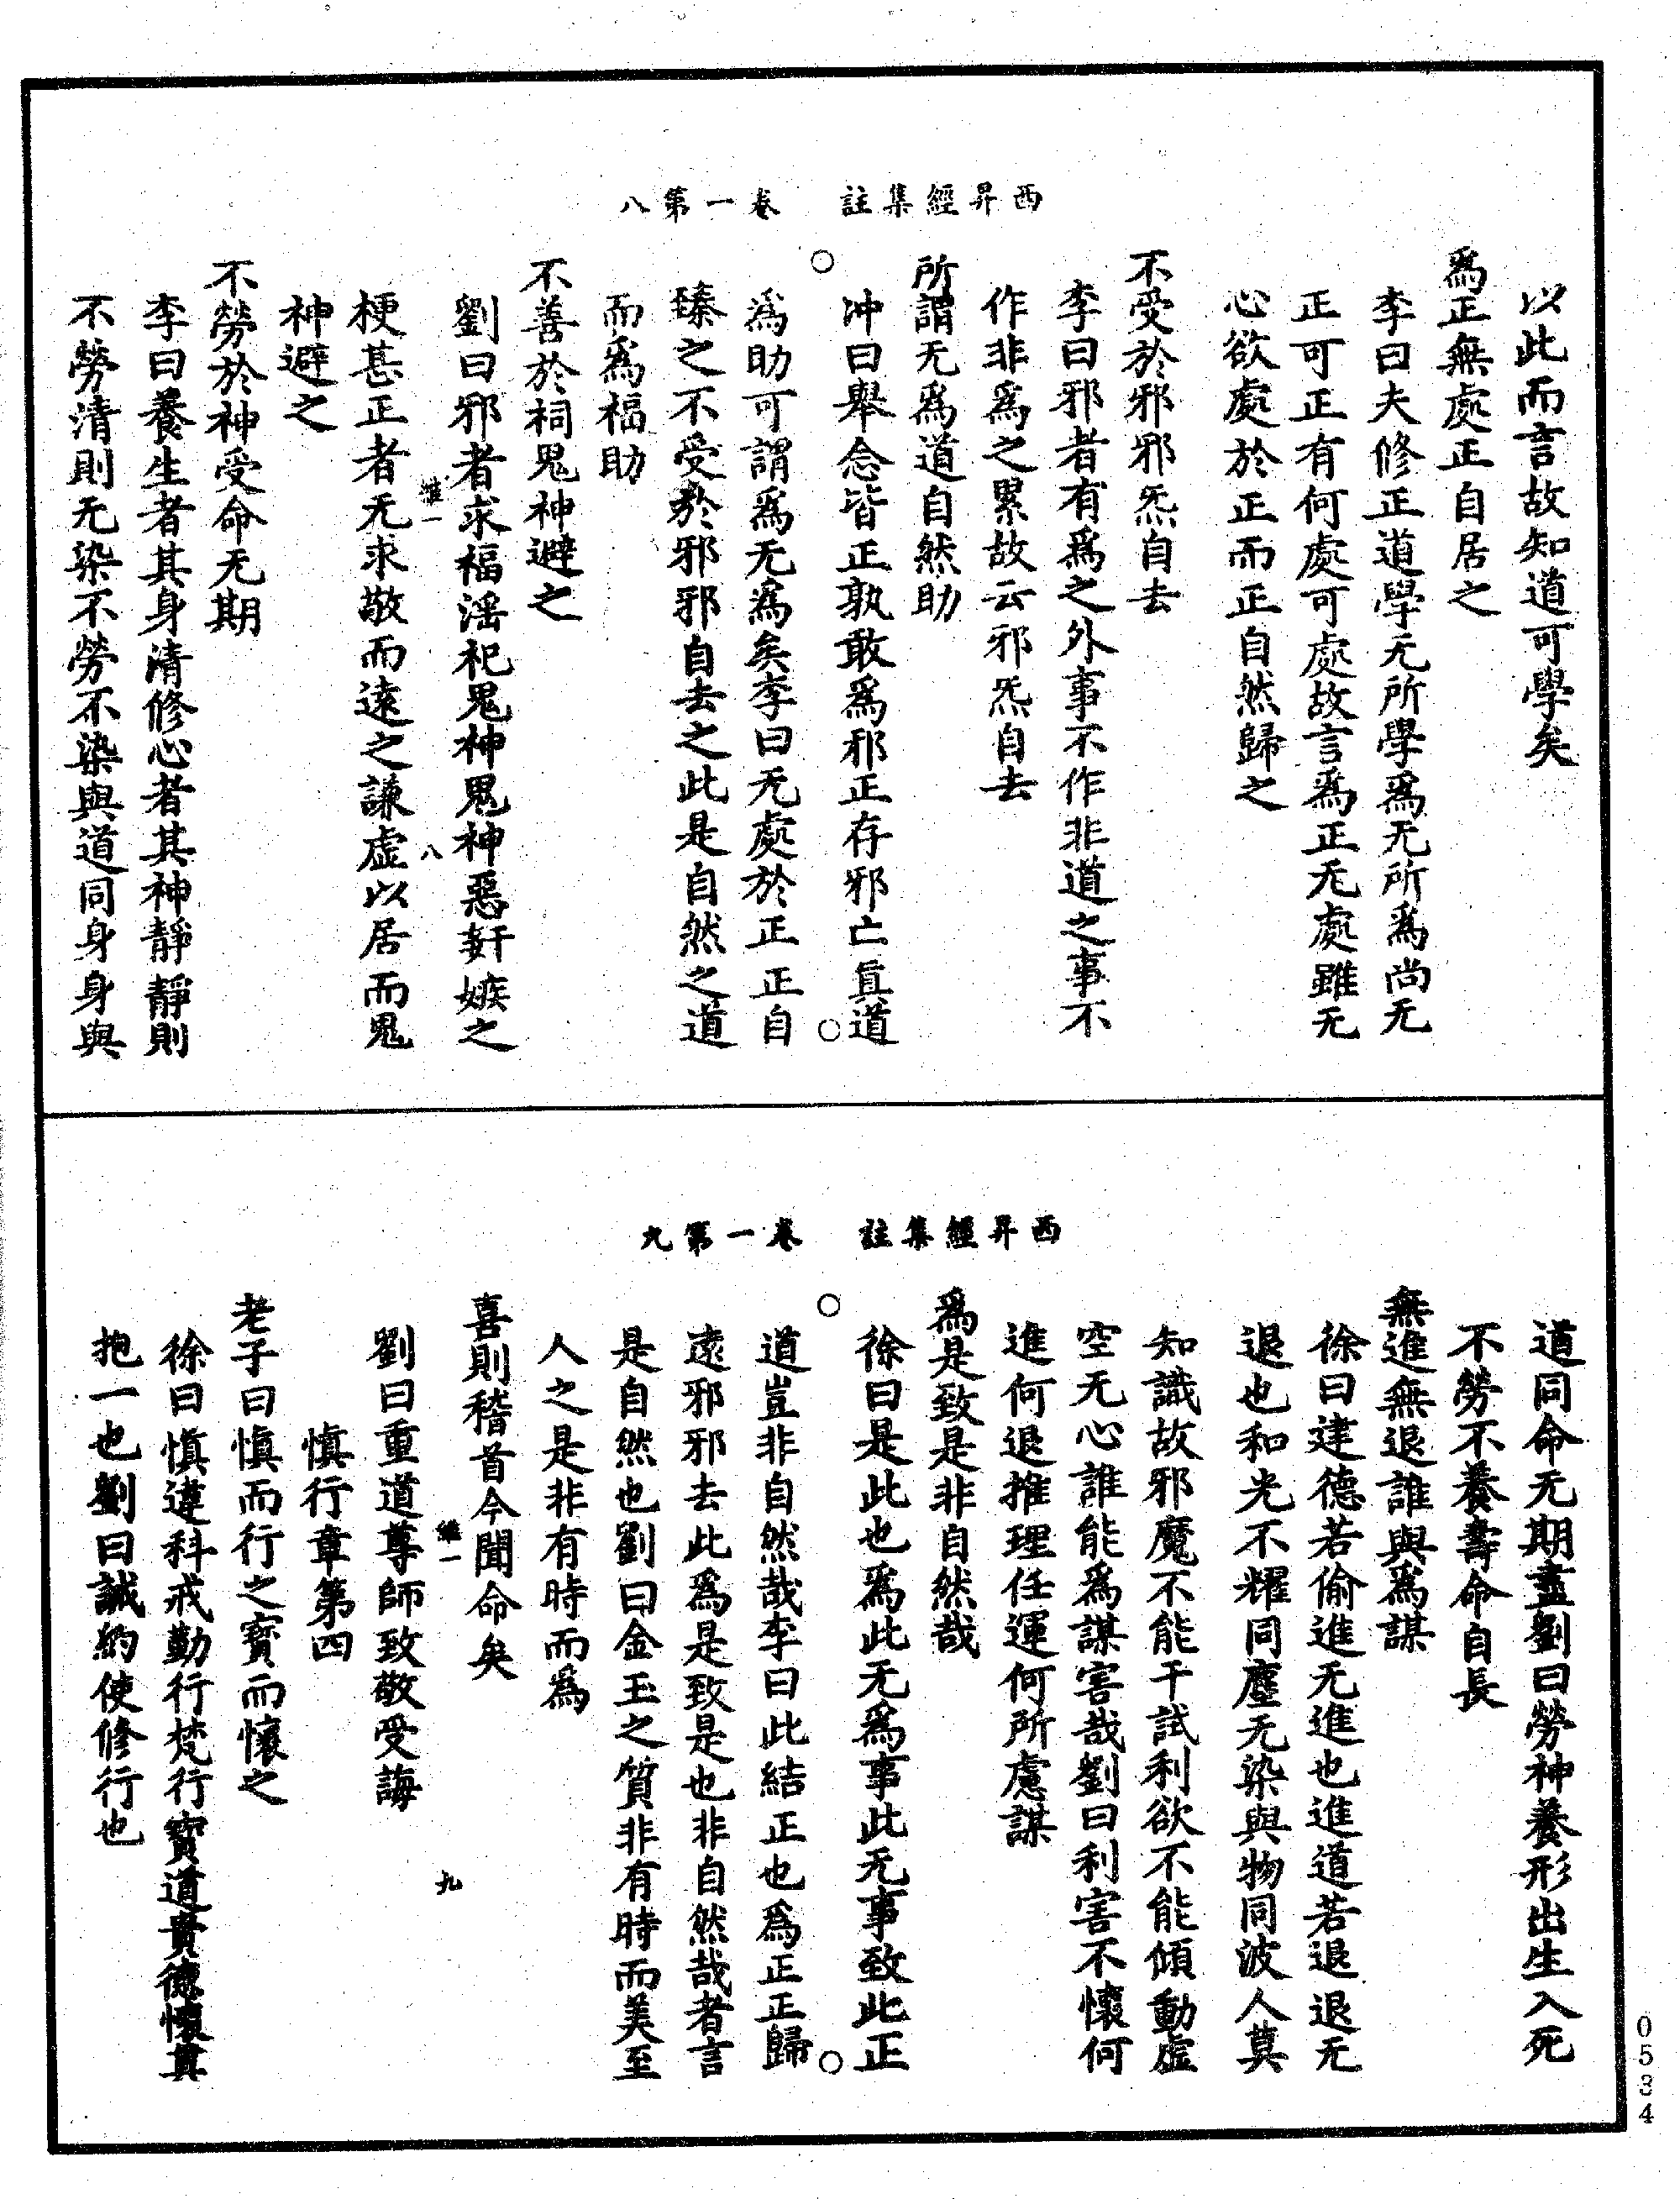 西昇經集註　卷一第八
以此而言故知道可學矣
爲正無處正自居之
李曰夫修正道學无所學爲无所爲尚无
正可正有何處可處故言爲正无處雖无
心欲處於正而正自然歸之
不受於邪邪炁自去
李曰邪者有爲之外事不作非道之事不
作非爲之累故云邪炁自去
所謂无爲道自然助
冲曰舉念皆正孰敢爲邪正存邪亡眞道
爲助可謂爲无爲矣李曰无處於正正自
臻之不受於邪邪自去之此是自然之道
而爲福助
不善於祠鬼神避之
劉曰邪者求福淫祀鬼神鬼神惡姧嫉之
維一　八
梗甚正者无求敬而遠之謙虛以居而鬼
神避之
不勞於神受命无期
李曰養生者其身清修心者其神靜靜則
不勞清則无染不勞不染與道同身身與
西昇經集註　卷一第九
道同命无期盡劉曰勞神養形出生入死
不勞不養壽命自長
無進無退誰與爲謀
徐曰建德若偷進无進也進道若退退无
退也和光不耀同塵无染與物同波人莫
知識故邪魔不能干試利欲不能傾動虛
空无心誰能爲謀害哉劉曰利害不懷何
進何退推理任運何所慮謀
爲是致是非自然哉
徐曰是此也爲此无爲事此无事致此正
道豈非自然哉李曰此結正也爲正正歸
遠邪邪去此爲是致是也非自然哉者言
是自然也劉曰金玉之質非有時而美至
人之是非有時而爲
喜則稽首今聞命矣
維一　九
劉曰重道尊師致敬受誨
愼行章第四
老子曰愼而行之寳而懷之
徐曰愼違科戒勤行梵行寳道貴德懷眞
抱一也劉曰誠約使修行也
0534